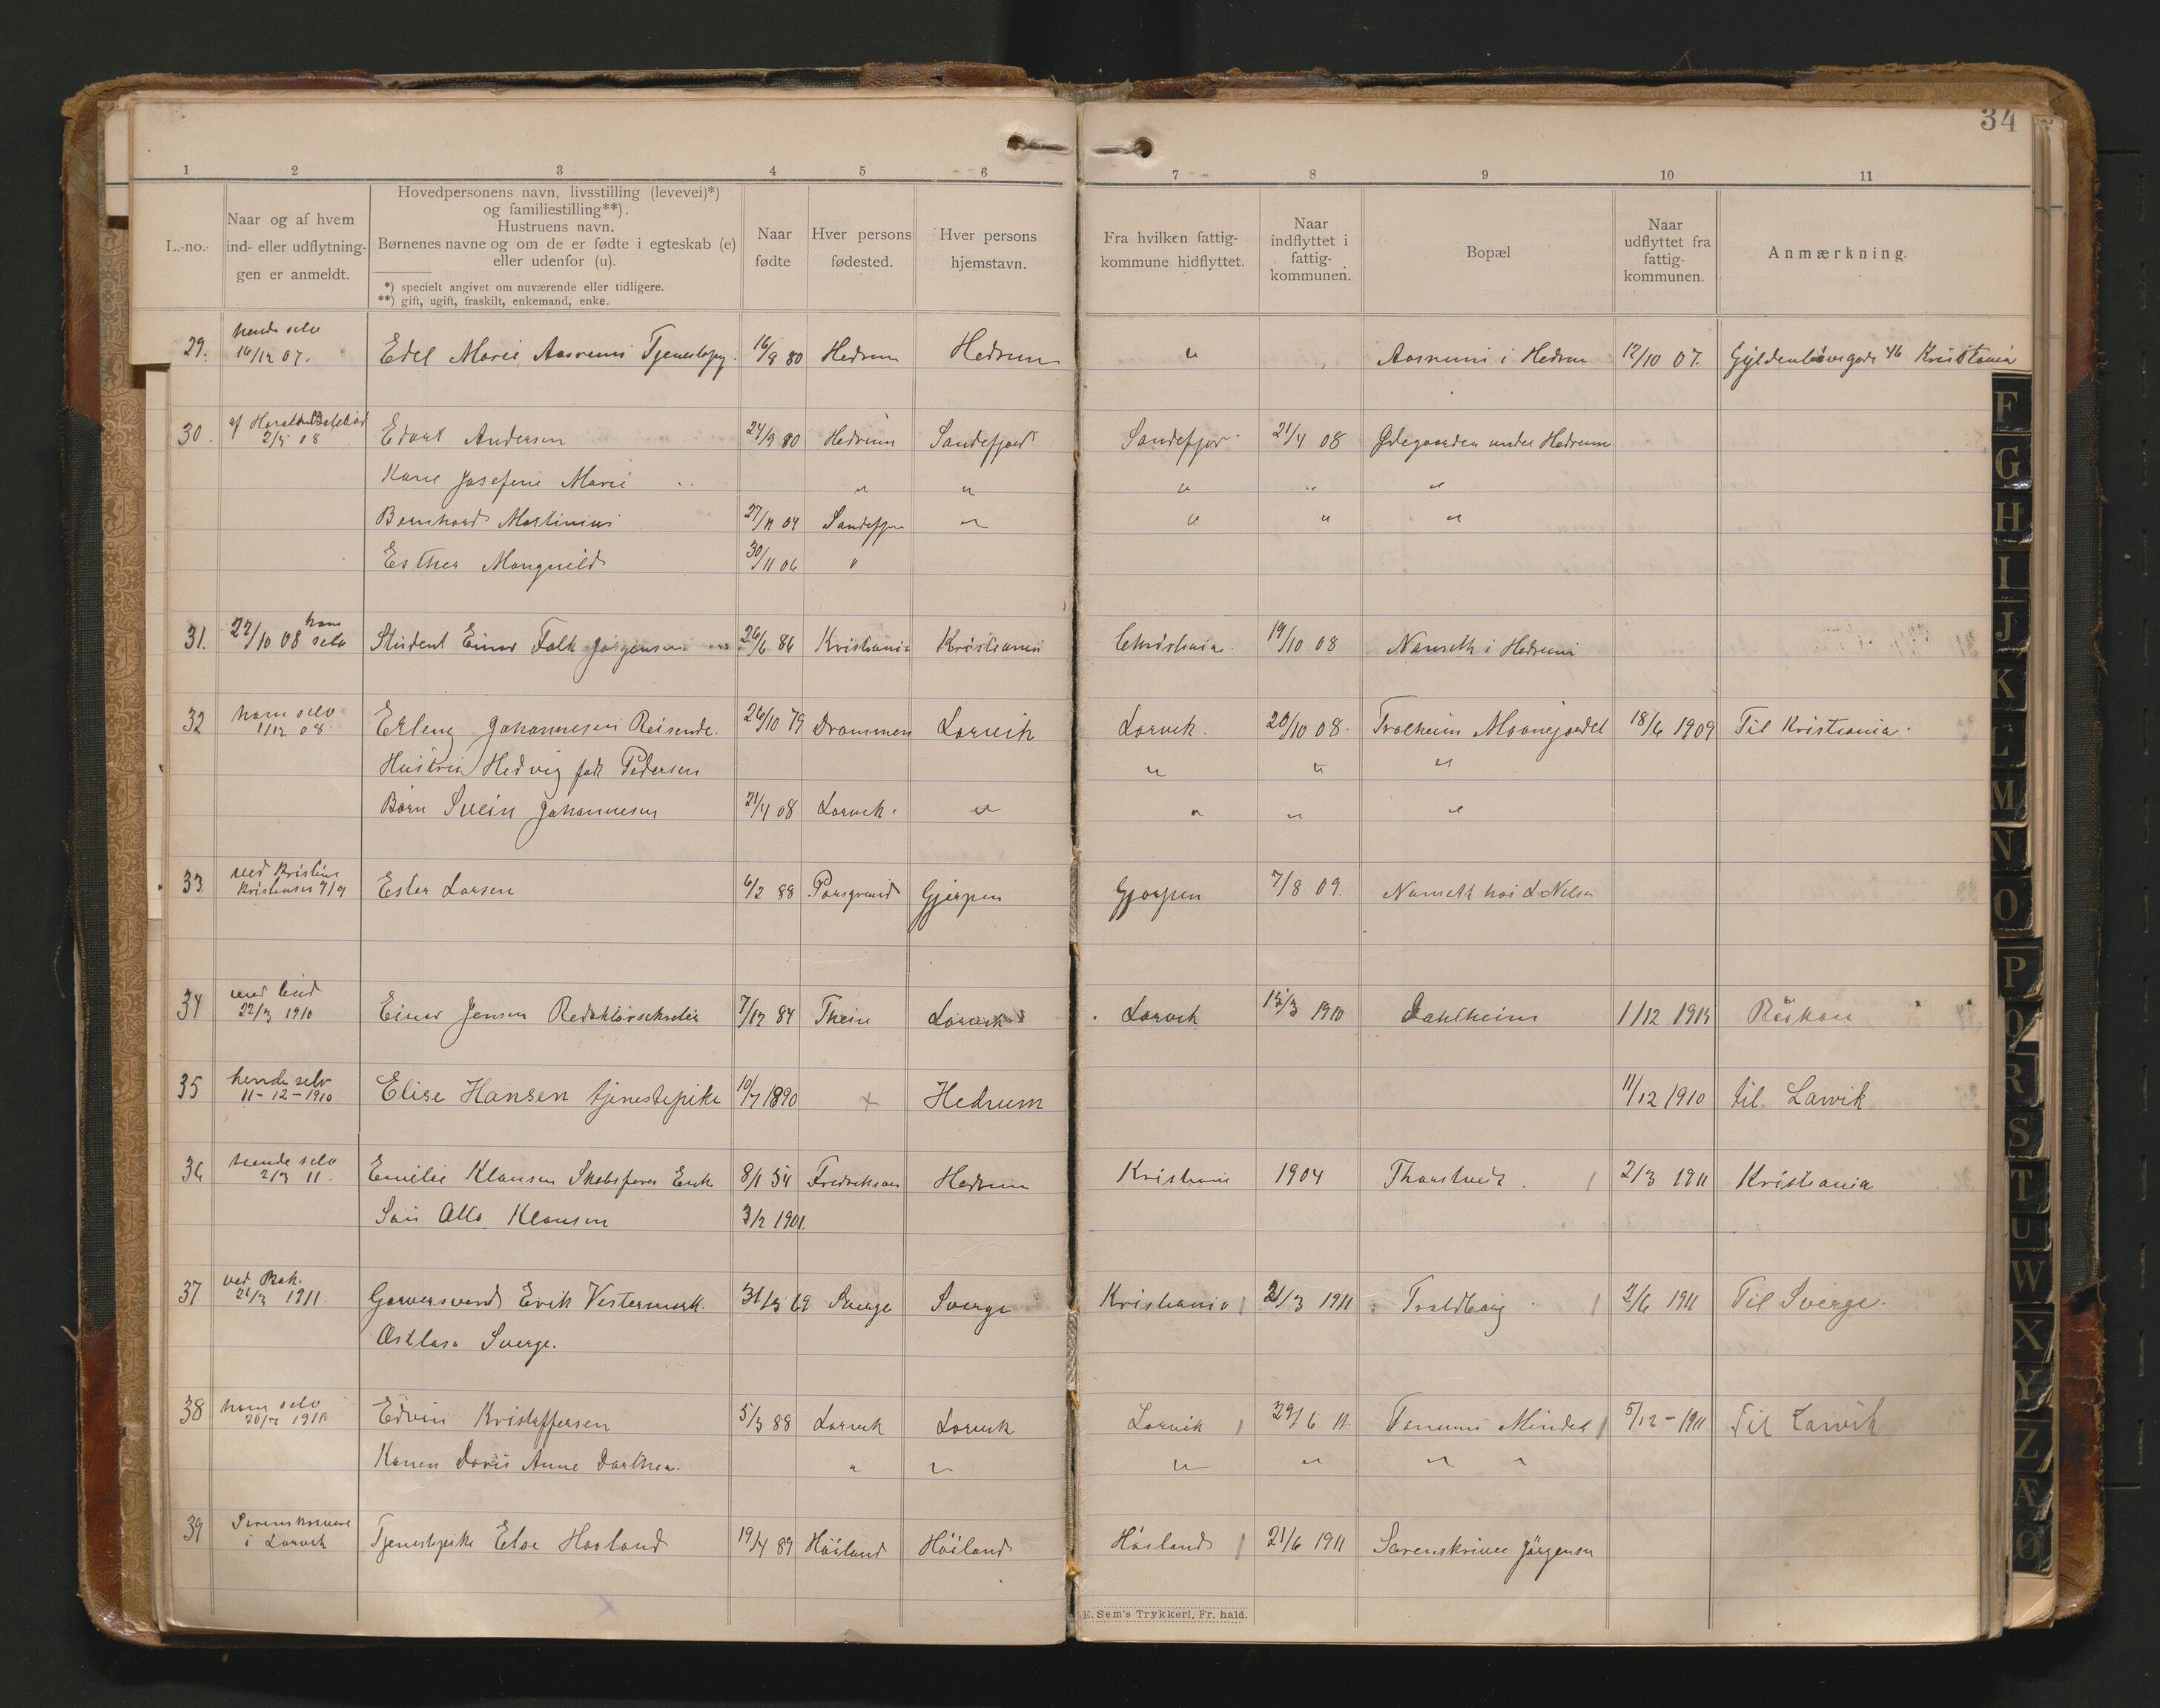 34
1 2 3 4 5 6 7 8 9 10 11
L.-no.
Naar og af hvem
ind- eller udflytnin-
gen er anmeldt.
Hovedpersonens navn, livsstilling (levevei)*)
og familiestilling**).
Hustruens navn.
Børnenes navne og om de er fødte i egteskab (e)
eller udenfor (u).
*) specielt angivet om nuværende eller tidligere.
**) gift, ugift, fraskilt, enkemand, enke.
Naar
fødte
Hver persons
fødested.
Hver persons
hjemstavn.
Fra hvilken fattig-
kommune hidflyttet.
Naar
indflyttet i
fattig-
kommunen.
Bopæl
Naar
udflyttet fra
fattig-
kommunen.
Anmærkning.
hende selv
29. 16/12 07. Edel Marie Aasrumi Tjenestepg. 16/9 80 Hedrum Hedrum " Aasrumi i Hedrum 12/10 07. Gyldenløvsgade 46 Kristiania
30. 2/5 08 Edvart Andersen 24/9 80 Hedrum Sandefjord Sandefjor 21/4 08 Ødegaarden under Hedrum
Kane Josefine Marie " " " " "
Bernhard Martinius 27/11 04 Sandefjor " " " "
Esther Mangnild 30/11 06 "
31. 22/10 08 ham selv Student Einar Falk Jørgensen 26/6 86 Kristiania Kristiania Christiania 19/10 08 Nanseth i Hedrum
ham selv
32 1/12 08 Erling Johannesen Reisende. 26/10 79 Drammen Larvik Larvik. 20/10 08. Tralheim Maanejordet 18/6 1909 Til Kristiania.
Hustru Hedvig født Pedersen " " "
Barn Svein Johannesen 21/4 08 Larvik. " " " "
ved Kristine
33 Kristensen 7/9 Ester Larsen 6/2 88 Porsgrund Gjerpen Gjerpen 7/8 09. Nanseth hos L. Nelsen
34 22/3 1910 Einar Jensen Redaktørsekretær 7/12 84 Larvik Larvik 15/3 1910 Dahlheim 1/12 1915 Rjukan
hende selv
35 11-12-1910 Elise Hansen tjenestepike 10/7 1890 + Hedrum 11/12 1910 til Larvik
hende selv
36 2/3 11. Emilie Klausen Enk 8/1 54 Hedrum Kristiania 1904 2/3 1911 Kristiania
Søn Otto Klausen 3/2 1901.
37 21/3 1911. Garversvend Erik Vestermark. 31/3 69 Sverge Sverge Kristiania 21/3 1911 Traldberg 2/6 1911 Til Sverge.
Sverge.
ham selv
38 Edvin Kristoffersen 5/3 88 Larvik Larvik Larvik 29/6 11. Tanum Mindet 5/12-1911 Til Larvik
Konen Doris Anne Dorthea. " " " " " "
Sorenskriveren
39 i Larvik Tjenestepike Else Haaland 19/4 89 Höiland Höiland Höiland 21/6 1911 Sorenskriver Jørgensen
E. Sem's Trykkeri, Fr. hald.
F
G
H
I
J
K
L
M
N
O
P
Q
R
S
T
U
W
X
Y
Z
Æ
Ø